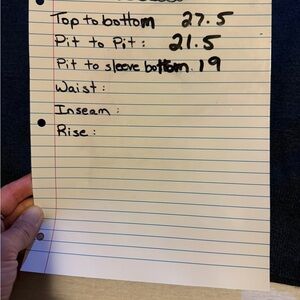 Top to bottom 27.5
Pit to Pit: 21.5
Pit to sleeve bottom. 19
Waist:
Inseam:
Rise: